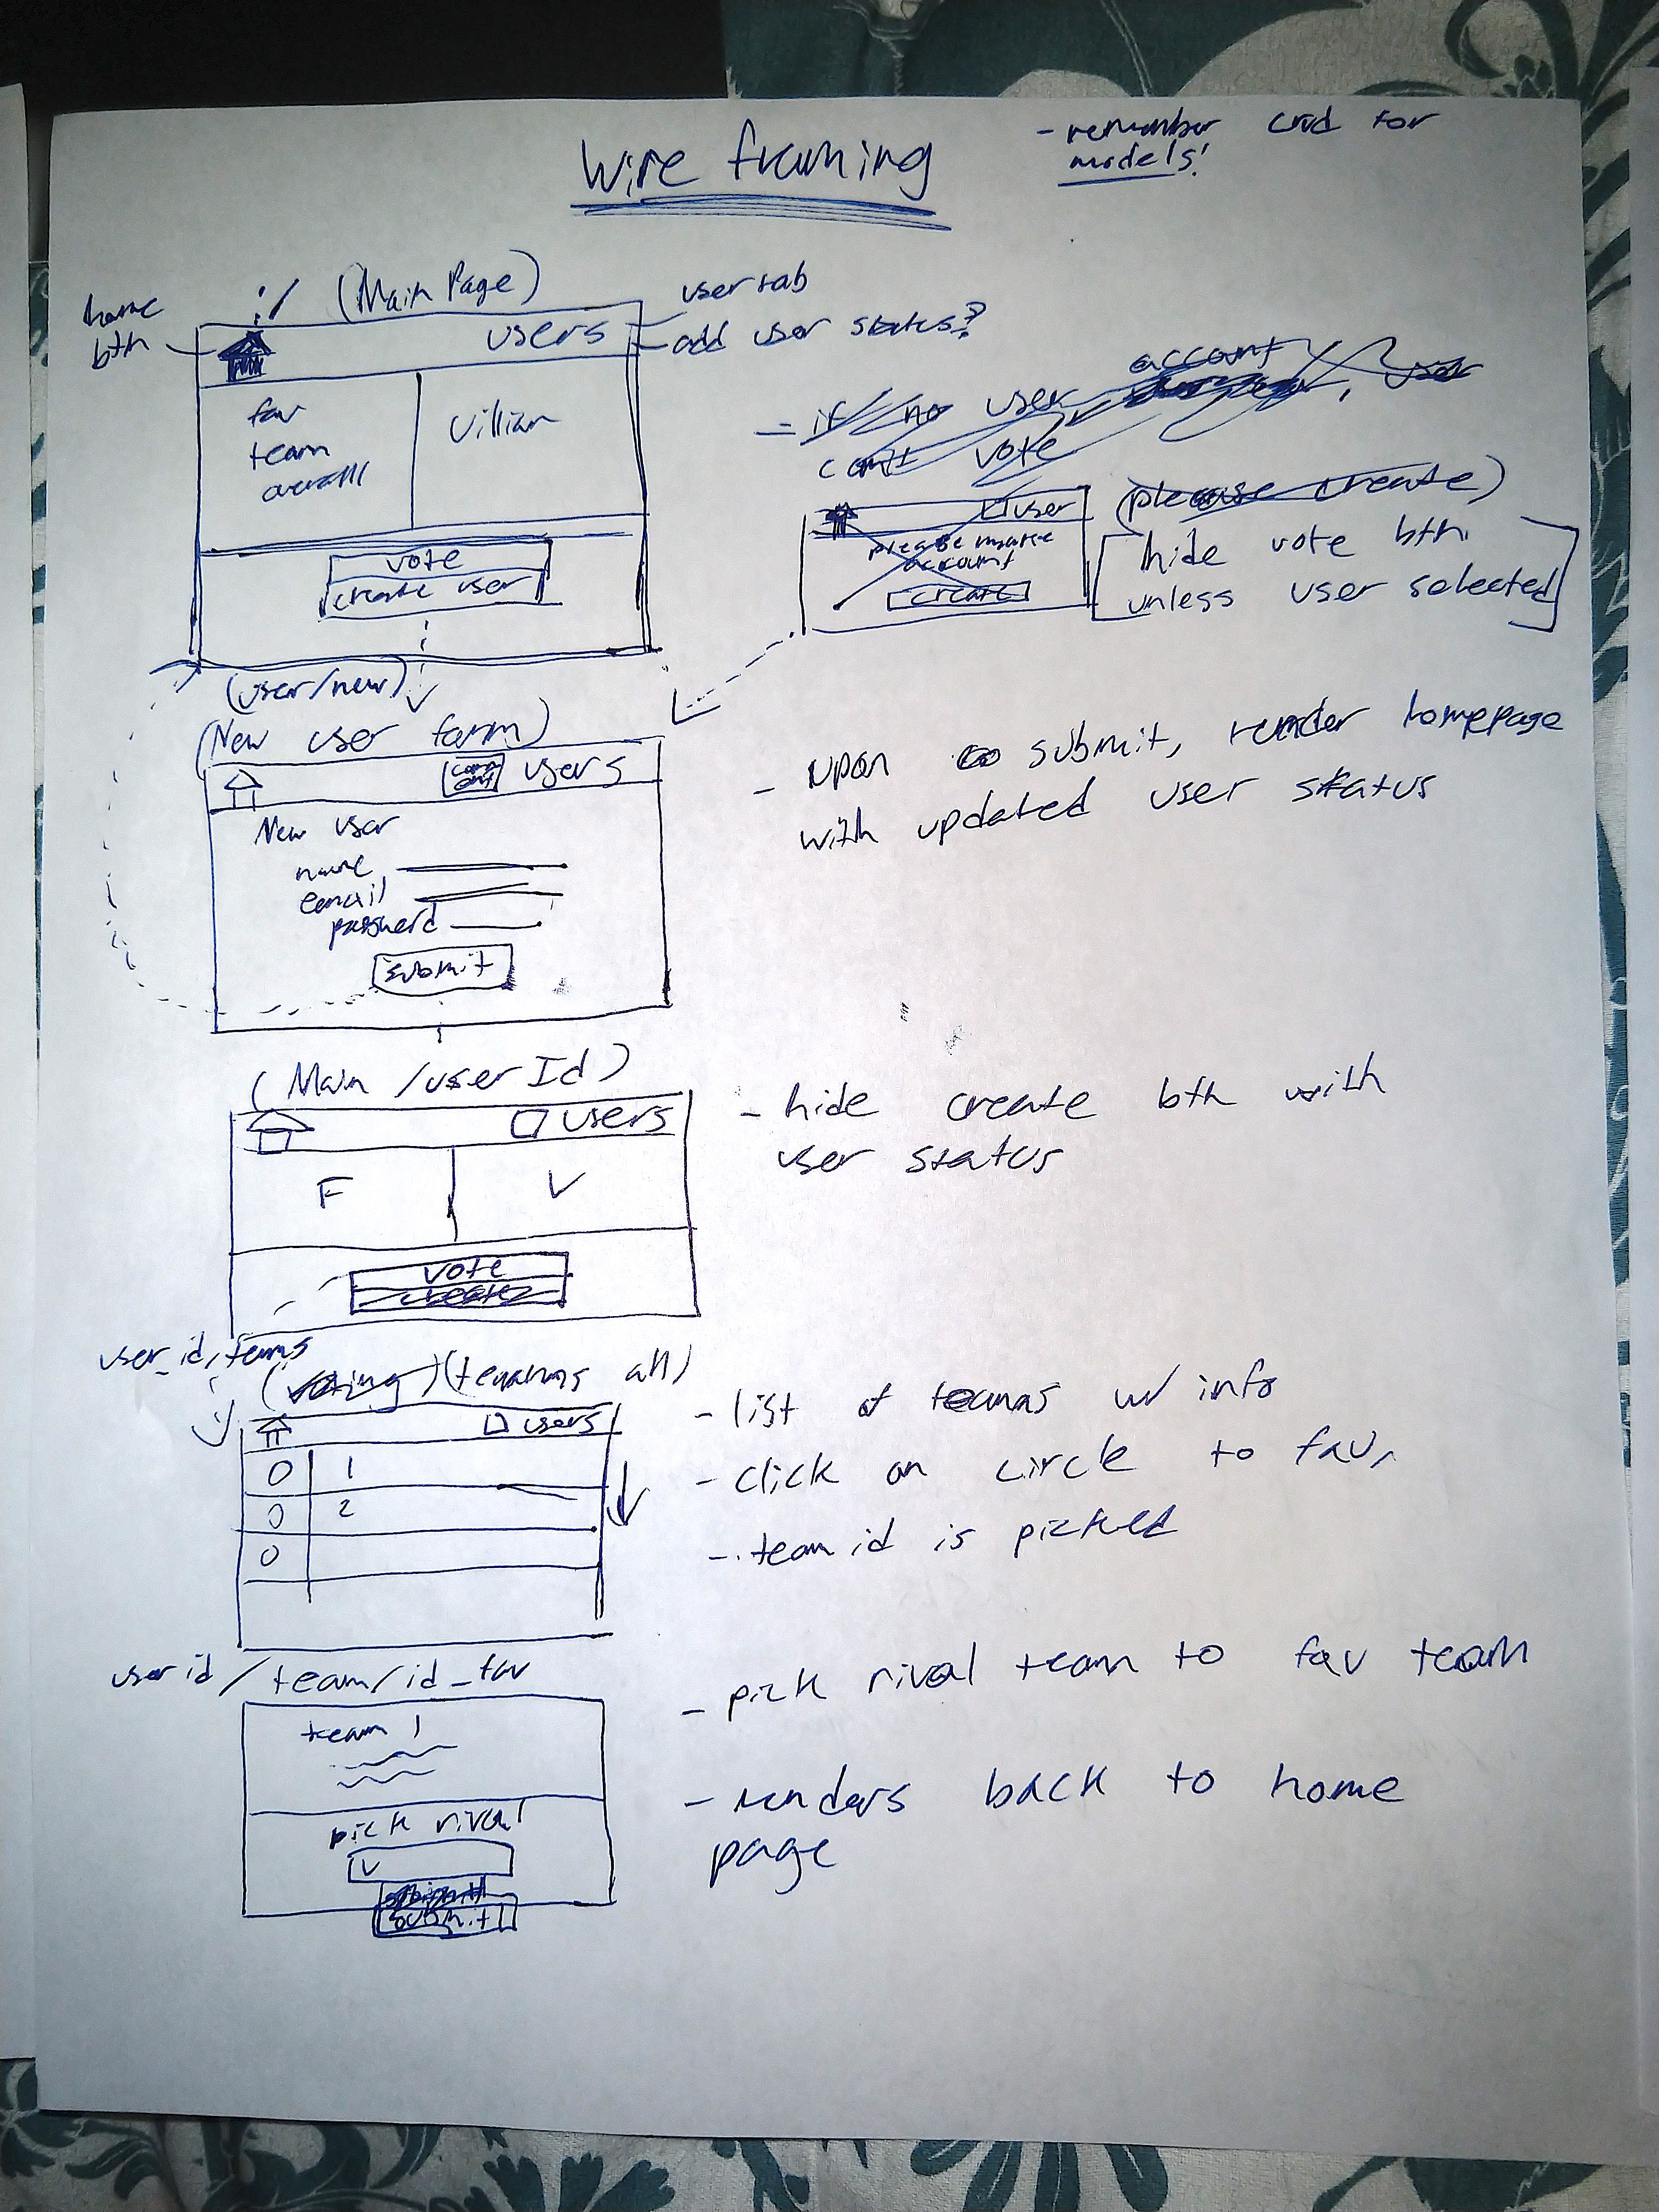 Wire framing
- remember crud for
models!
(Main Page)
home
btn
users
user tab
add user status?
fav
team
overall
Villian
vote
create user
- if no user account, user
cant vote
(please create)
user
please make
account
create
hide vote btn
unless user selected
(user/new)
(New user form)
users
New user
name
email
password
submit
- upon submit, render homepage
with updated user status
(Main /user Id)
users
F
V
vote
create
- hide create btn with
user status
user_id/teams
(voting) (teams all)
users
O 1
O 2
O
- list of teams w/ info
- click on circle to fav.
- team id is picked
user id / team/id_fav
team 1
pick rival
V
submit
submit
- pick rival team to fav team
- renders back to home
page